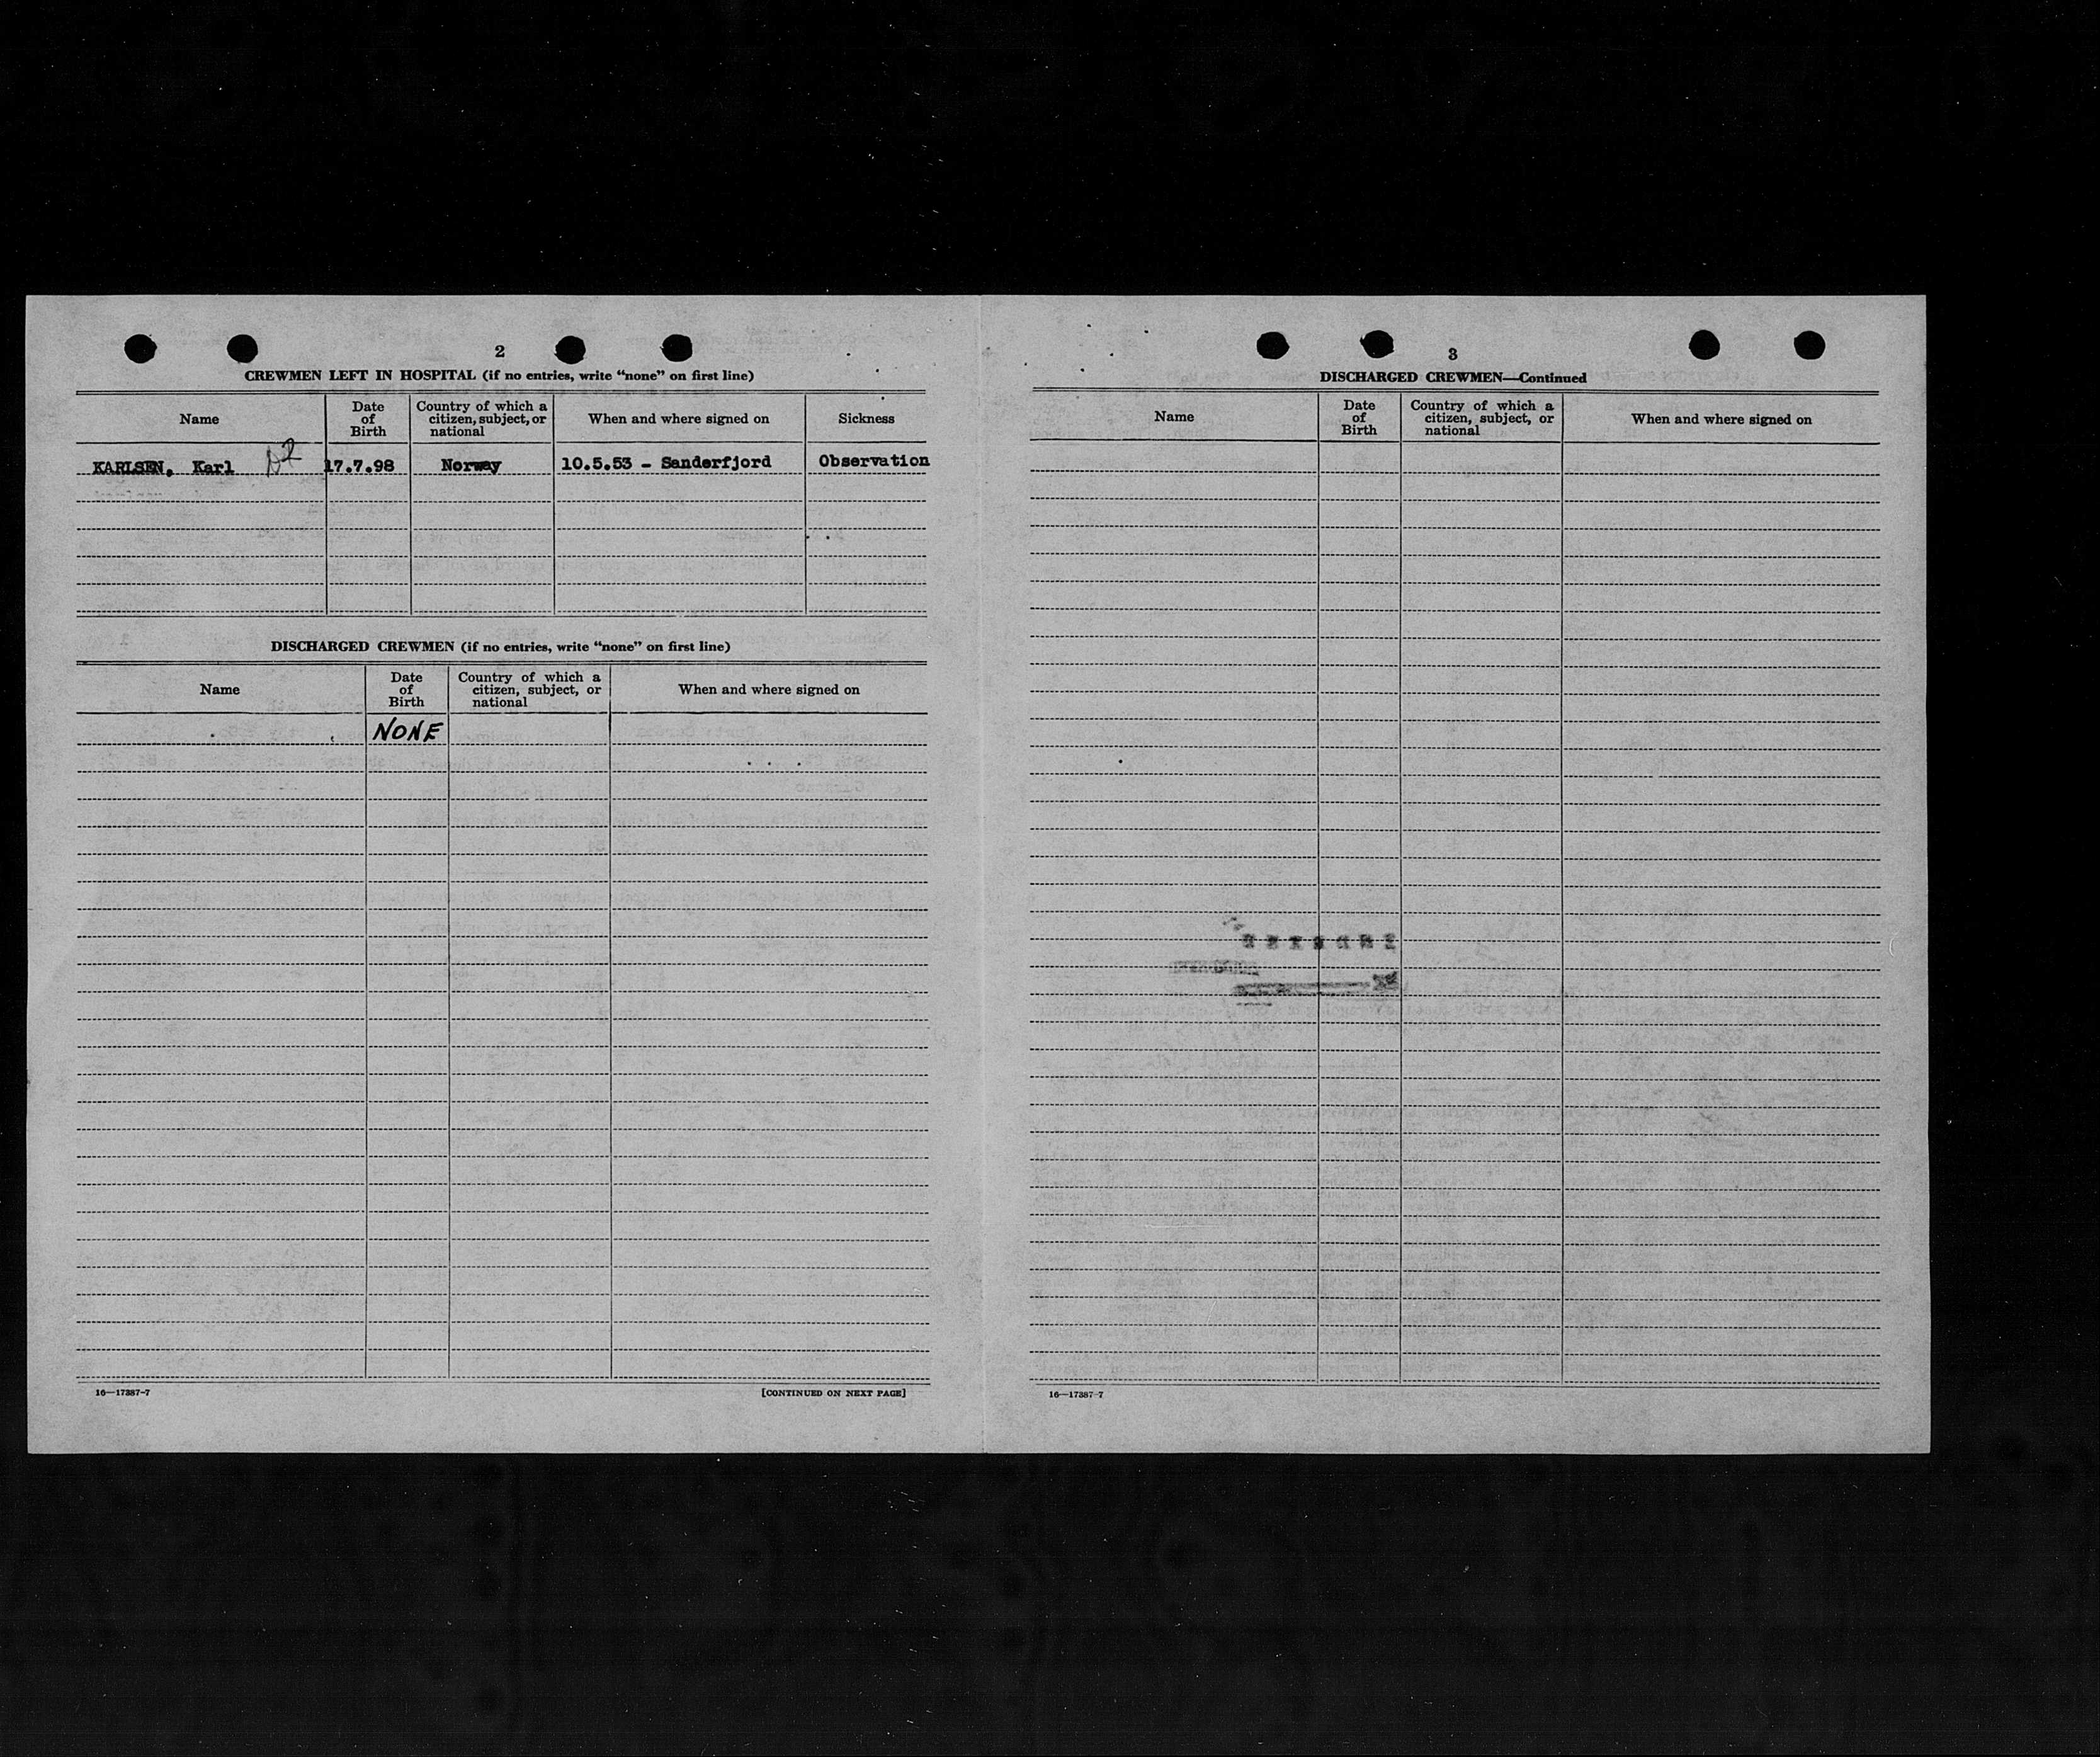 2
CREWMEN LEFT IN HOSPITAL (if no entries, write “none” on first line)
Name
Date of Birth
Country of which a citizen, subject, or national
When and where signed on
Sickness
KARLSEN, Karl 17.7.98 Norway 10.5.53 - Sanderfjord Observation
DISCHARGED CREWMEN (if no entries, write “none” on first line)
Name
Date of Birth
Country of which a citizen, subject, or national
When and where signed on
NONE
16—17387-7 [CONTINUED ON NEXT PAGE]
3
DISCHARGED CREWMEN—Continued
Name
Date of Birth
Country of which a citizen, subject, or national
When and where signed on
16—17387-7